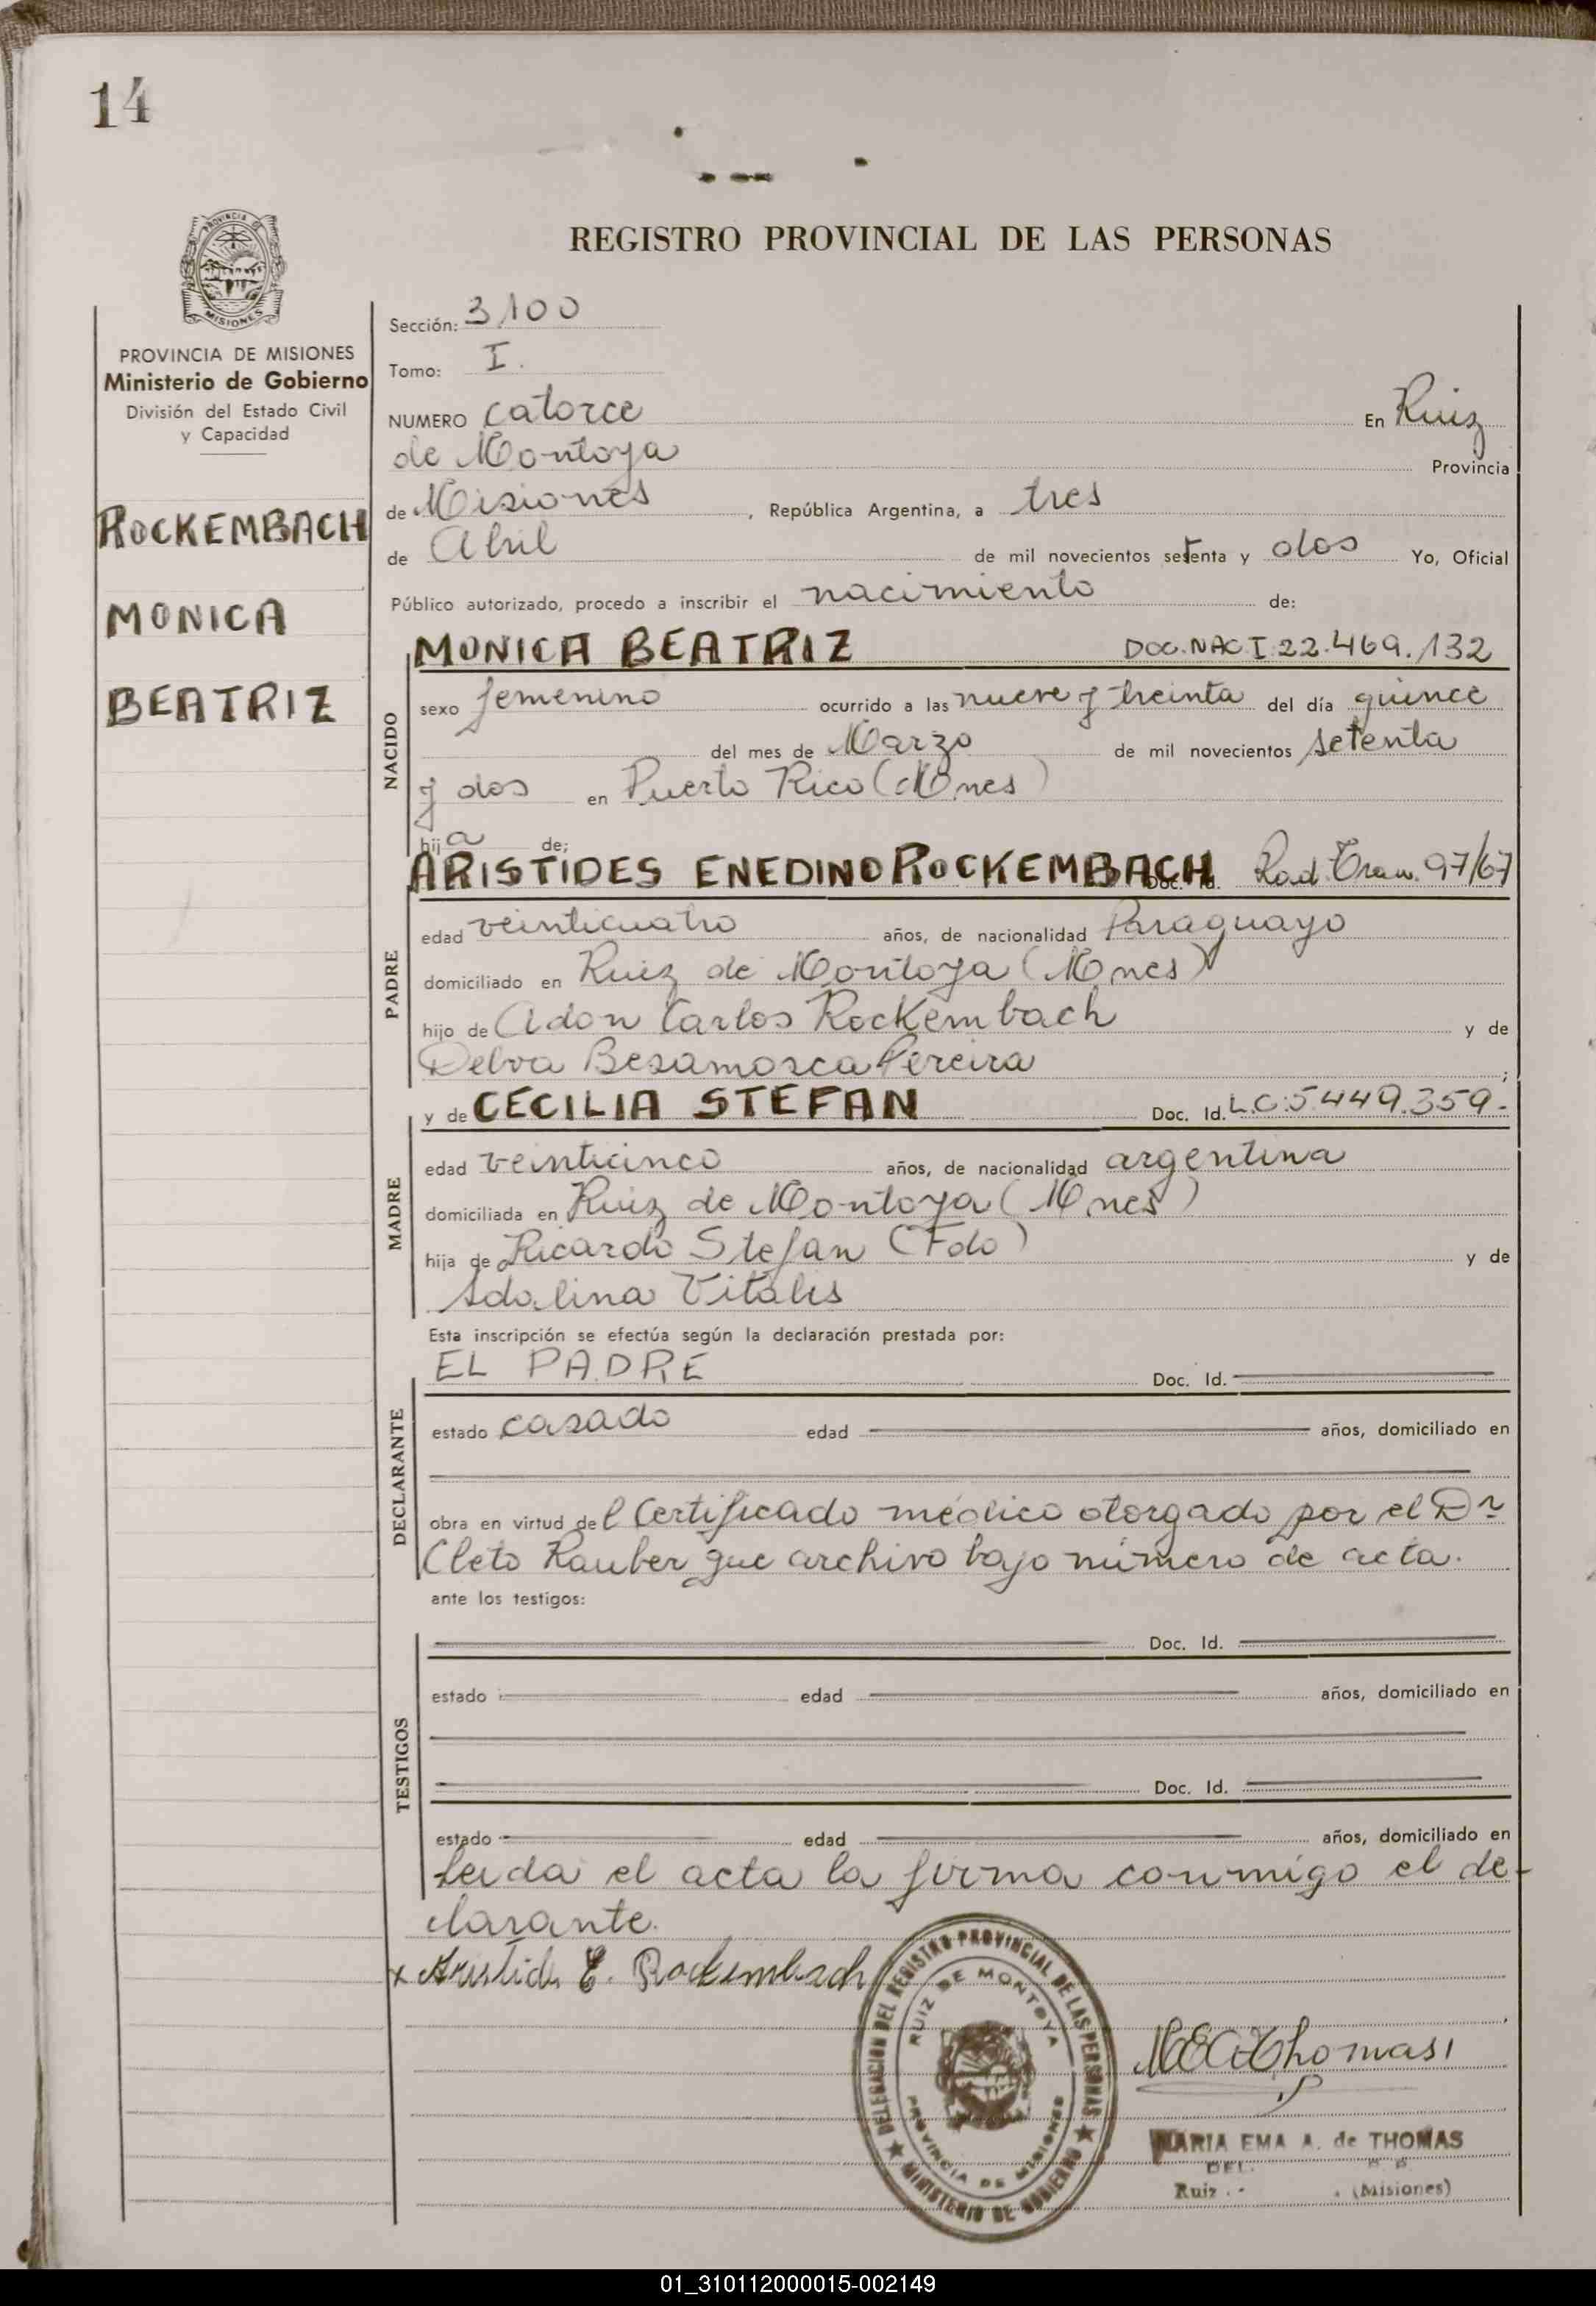 14
PROVINCIA DE
MISIONES
REGISTRO PROVINCIAL DE LAS PERSONAS
PROVINCIA DE MISIONES
Ministerio de Gobierno
División del Estado Civil
y Capacidad
ROCKEMBACH
MONICA
BEATRIZ
Sección: 3.100
Tomo: I.
NUMERO catorce En Ruiz
de Montoya Provincia
de Misiones, República Argentina, a tres
de Abril de mil novecientos setenta y dos Yo, Oficial
Público autorizado, procedo a inscribir el nacimiento de:
NACIDO
MONICA BEATRIZ DOC.NAC.I 22.469.132
sexo femenino ocurrido a las nueve y treinta del día quince
del mes de Marzo de mil novecientos setenta
y dos en Puerto Rico (Mnes)
hija de;
PADRE
ARISTIDES ENEDINO ROCKEMBACH Doc. Id. Rad. Tram. 97/67
edad veinticuatro años, de nacionalidad Paraguayo
domiciliado en Ruiz de Montoya (Mnes)
hijo de Adon Carlos Rockembach y de
Delva Besamosca Pereira;
MADRE
y de CECILIA STEFAN Doc. Id. L.C.5449.359.-
edad veinticinco años, de nacionalidad argentina
domiciliada en Ruiz de Montoya (Mnes)
hija de Ricardo Stefan (Fdo) y de
Adolina Vitalis
Esta inscripción se efectúa según la declaración prestada por:
DECLARANTE
EL PADRE Doc. Id.
estado casado edad años, domiciliado en
obra en virtud del Certificado médico otorgado por el Dr
Cleto Rauber que archivo bajo número de acta.
ante los testigos:
TESTIGOS
Doc. Id.
estado edad años, domiciliado en
Doc. Id.
estado edad años, domiciliado en
Leida el acta la firma conmigo el de-
clarante.
x Aristides E. Rockembach
DELEGACION DEL REGISTRO PROVINCIAL DE LAS PERSONAS
RUIZ DE MONTOYA
PROVINCIA DE MISIONES
MINISTERIO DE GOBIERNO
MARIA EMA A. de THOMAS
DEL.
Ruiz (Misiones)
01_310112000015-002149